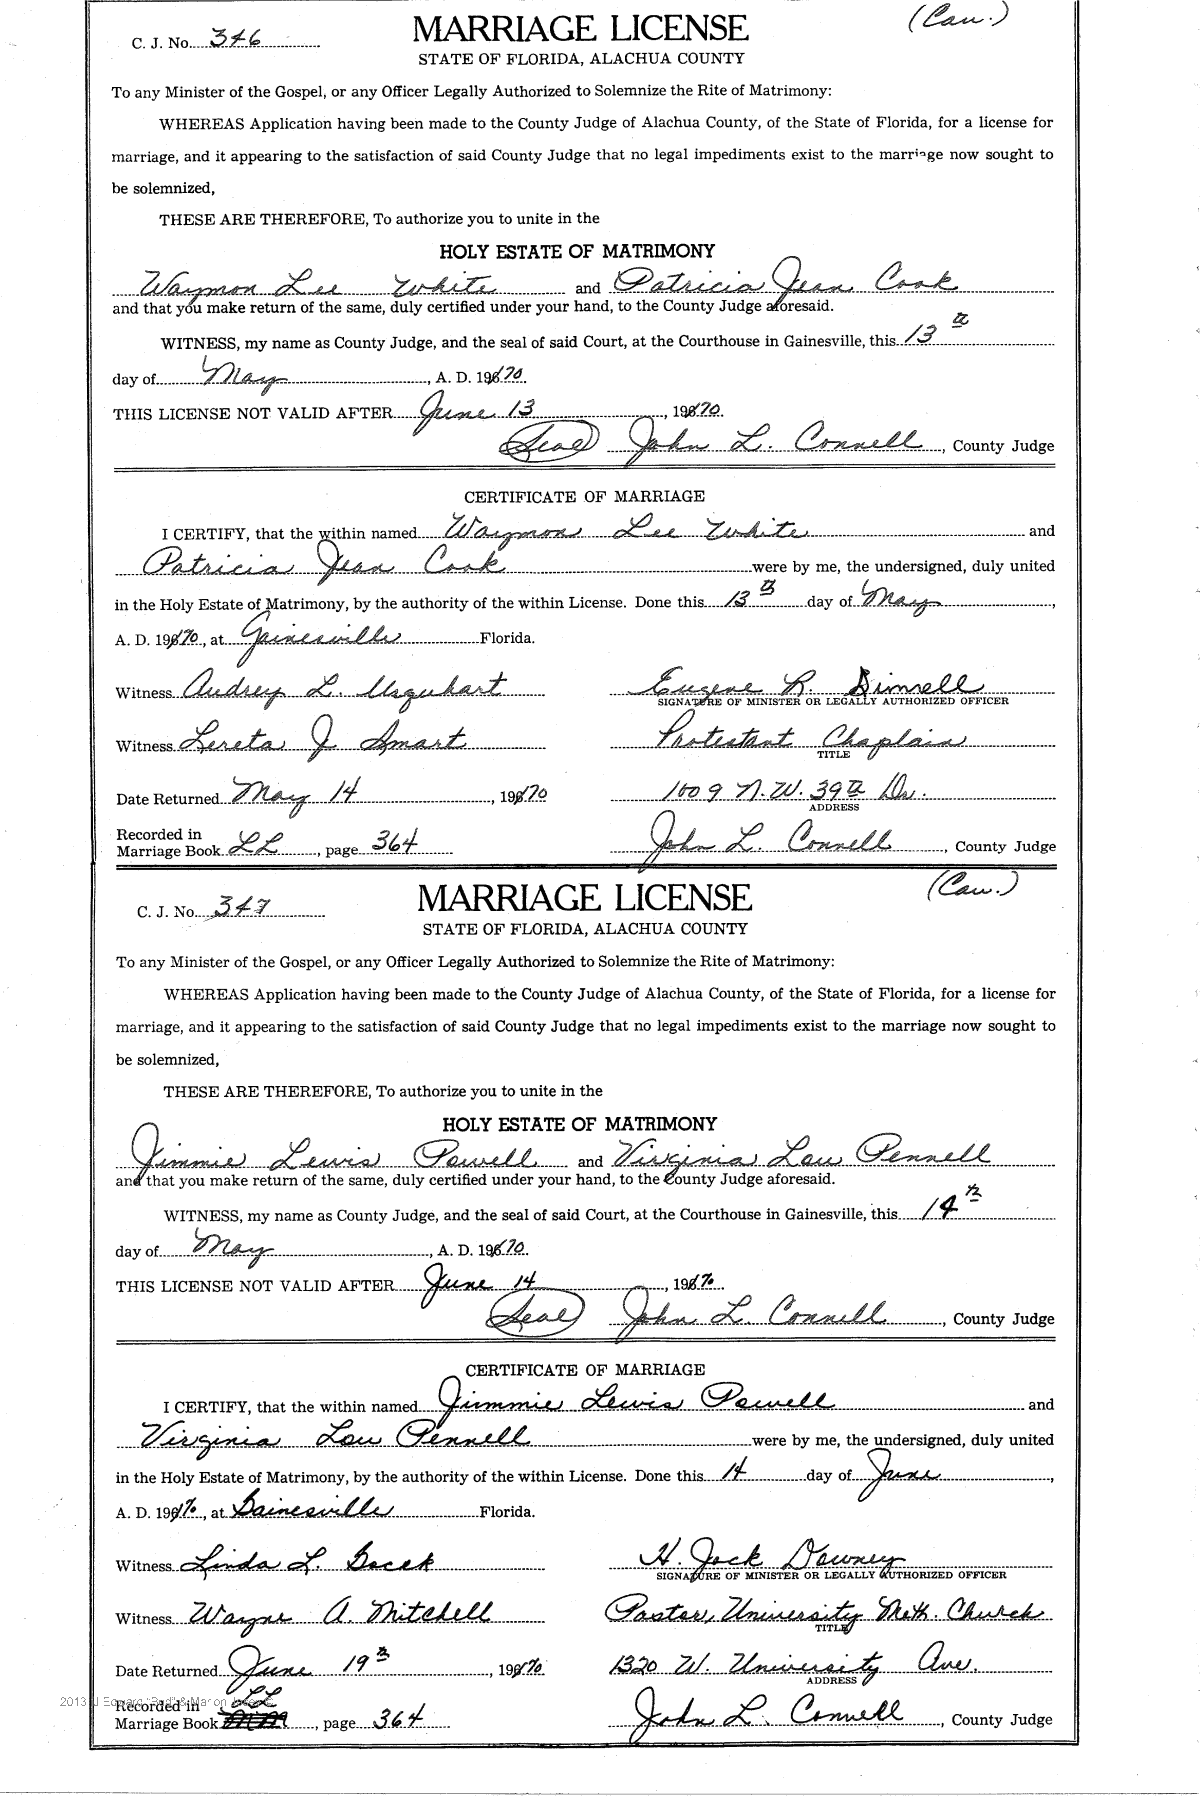 (Cau.)
C. J. No. 346
MARRIAGE LICENSE
STATE OF FLORIDA, ALACHUA COUNTY
To any Minister of the Gospel, or any Officer Legally Authorized to Solemnize the Rite of Matrimony:
WHEREAS Application having been made to the County Judge of Alachua County, of the State of Florida, for a license for
marriage, and it appearing to the satisfaction of said County Judge that no legal impediments exist to the marriage now sought to
be solemnized,
THESE ARE THEREFORE, To authorize you to unite in the
HOLY ESTATE OF MATRIMONY
Waymon Lee White and Patricia Jean Cook
and that you make return of the same, duly certified under your hand, to the County Judge aforesaid.
WITNESS, my name as County Judge, and the seal of said Court, at the Courthouse in Gainesville, this 13th
day of May, A. D. 1970.
THIS LICENSE NOT VALID AFTER June 13, 1970.
(Seal) John L. Connell, County Judge
CERTIFICATE OF MARRIAGE
I CERTIFY, that the within named Waymon Lee White and
Patricia Jean Cook were by me, the undersigned, duly united
in the Holy Estate of Matrimony, by the authority of the within License. Done this 13th day of May,
A. D. 1970, at Gainesville Florida.
Witness Audrey L. Urquhart Eugene R.
SIGNATURE OF MINISTER OR LEGALLY AUTHORIZED OFFICER
Witness Lereta J Smart Protestant Chaplain
TITLE
Date Returned May 14, 1970 1009 N.W. 39th Dr.
ADDRESS
Recorded in
Marriage Book LL, page 364 John L. Connell, County Judge
(Cau.)
C. J. No. 347
MARRIAGE LICENSE
STATE OF FLORIDA, ALACHUA COUNTY
To any Minister of the Gospel, or any Officer Legally Authorized to Solemnize the Rite of Matrimony:
WHEREAS Application having been made to the County Judge of Alachua County, of the State of Florida, for a license for
marriage, and it appearing to the satisfaction of said County Judge that no legal impediments exist to the marriage now sought to
be solemnized,
THESE ARE THEREFORE, To authorize you to unite in the
HOLY ESTATE OF MATRIMONY
Jimmie Lewis Powell and Virginia Lou Pennell
and that you make return of the same, duly certified under your hand, to the County Judge aforesaid.
WITNESS, my name as County Judge, and the seal of said Court, at the Courthouse in Gainesville, this 14th
day of May, A. D. 1970.
THIS LICENSE NOT VALID AFTER June 14, 1970.
(Seal) John L. Connell, County Judge
CERTIFICATE OF MARRIAGE
I CERTIFY, that the within named Jimmie Lewis Powell and
Virginia Lou Pennell were by me, the undersigned, duly united
in the Holy Estate of Matrimony, by the authority of the within License. Done this 14 day of June,
A. D. 1970, at Gainesville Florida.
Witness Linda L. Bocek H. Jack Downey
SIGNATURE OF MINISTER OR LEGALLY AUTHORIZED OFFICER
Witness Wayne A. Mitchell Pastor, University Meth. Church
TITLE
Date Returned June 19th, 1970 1320 W. University Ave.
ADDRESS
Recorded in LL
Marriage Book, page 364 John L. Connell, County Judge